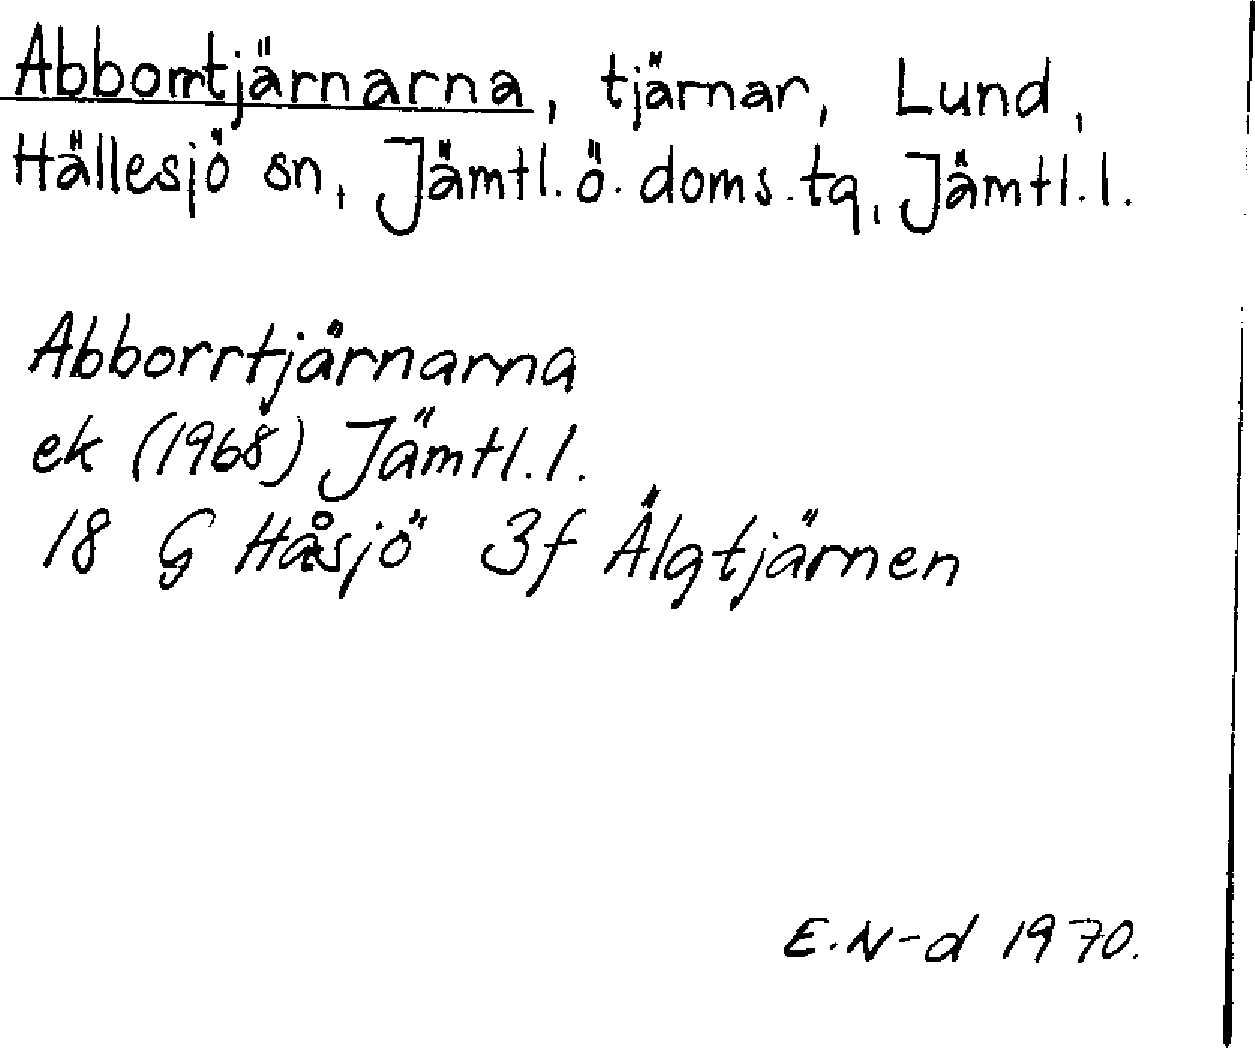 Abborrtjärnarna, tjärnar, Lund,
Hällesjö sn, Jämtl. ö. doms. tg, Jämtl. l.
Abborrtjärnarna
ek (1968) Jämtl. l.
18 G Håsjö 3f Älgtjärnen
E. N-d 1970.